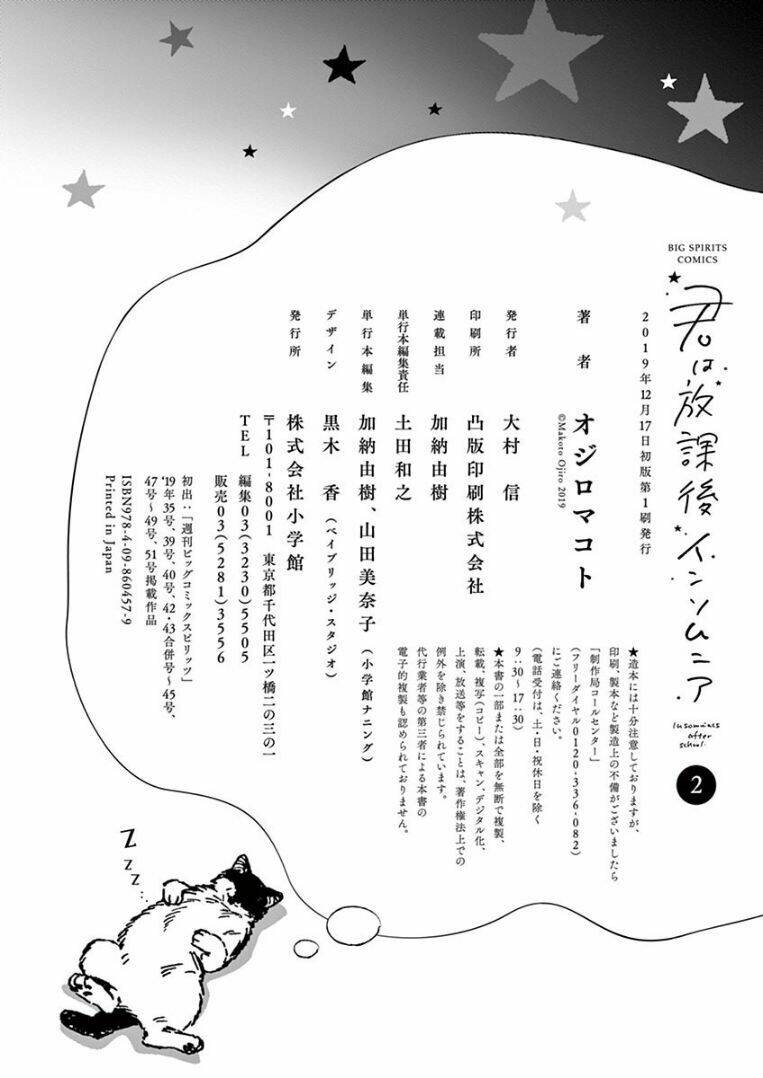 BIG SPIRITS
COMICS
君は放課後インソムニア
Insomniacs
after
school
2
2019年12月17日初版第1刷発行
著者 オジロマコト
©Makoto Ojiro 2019
発行者 大村 信
印刷所 凸版印刷株式会社
連載担当 加納由樹
単行本編集責任 土田和之
単行本編集 加納由樹、山田美奈子(小学館ナニング)
デザイン 黒木 香(ベイブリッジ・スタジオ)
発行所 株式会社小学館
〒101-8001 東京都千代田区一ツ橋二の三の一
TEL 編集03(3230)5505
販売03(5281)3556
初出:「週刊ビッグコミックスピリッツ」
'19年35号、39号、40号、42・43合併号〜45号、
47号〜49号、51号掲載作品
ISBN978-4-09-860457-9
Printed in Japan
★造本には十分注意しておりますが、
印刷、製本など製造上の不備がございましたら
「制作局コールセンター」
(フリーダイヤル0120-336-082)
にご連絡ください。
(電話受付は、土・日・祝休日を除く
9:30〜17:30)
★本書の一部または全部を無断で複製、
転載、複写(コピー)、スキャン、デジタル化、
上演、放送等をすることは、著作権法上での
例外を除き禁じられています。
代行業者等の第三者による本書の
電子的複製も認められておりません。
Z
Z
Z...